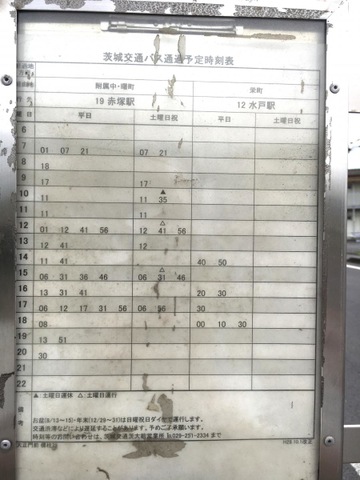 茨城交通バス通過予定時刻表
附属中・曙町 栄町
19 赤塚駅 12 水戸駅
曜日 平日 土曜日祝 平日 土曜日祝
6
7 01 07 21 07 21
8 18
9 17 17
10 11 11 ▲35
11 11 11
12 01 12 41 56 12 △41 56
13 12 41 12
14 11 41 40 50
15 06 31 36 46 06 △31 46
16 13 31 41 20 30
17 06 12 17 31 56 06 56 30
18 08 00 10 30
19 13 51
20 30
21
22
備考
▲：土曜日運休 △：土曜日運行
お盆(8/13～15)・年末(12/29～31)は日曜祝日ダイヤで運行します。
交通渋滞などにより遅延することがあります。予めご了承願います。
時刻等のお問い合わせは、茨城交通茨大前営業所 ℡029-251-2334 まで
H29.10.1改正